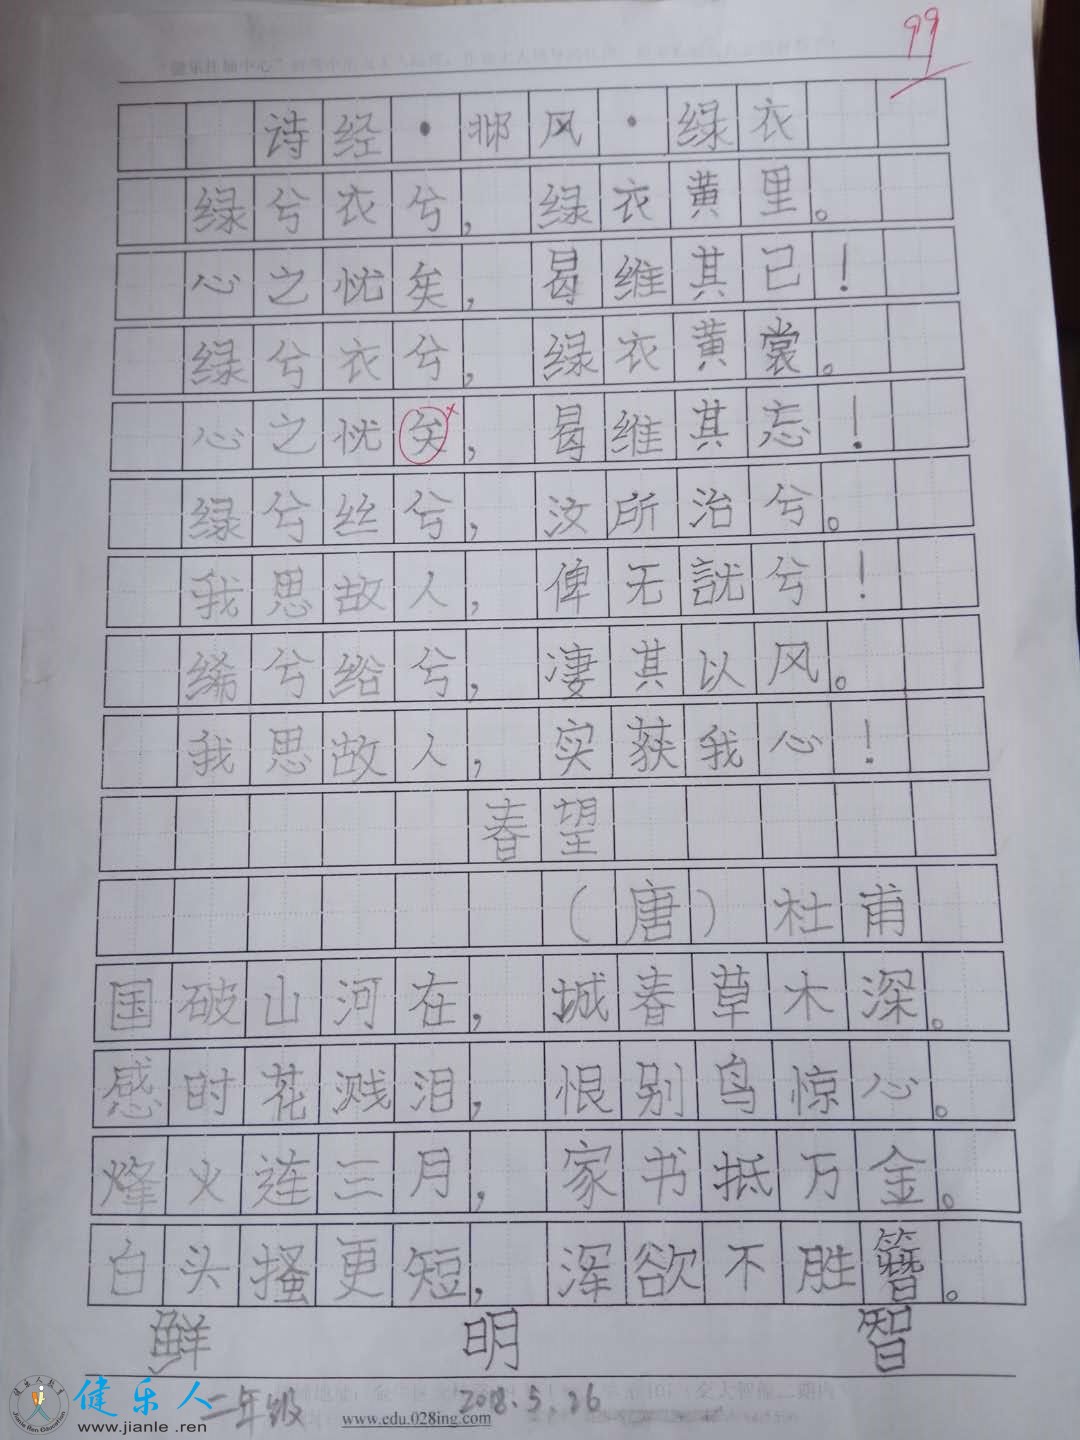 99
诗经·邶风·绿衣
绿兮衣兮，绿衣黄里。
心之忧矣，曷维其已！
绿兮衣兮，绿衣黄裳。
心之忧矣，曷维其忘！
绿兮丝兮，汝所治兮。
我思故人，俾无訧兮！
絺兮绤兮，凄其以风。
我思故人，实获我心！
春望
（唐）杜甫
国破山河在，城春草木深。
感时花溅泪，恨别鸟惊心。
烽火连三月，家书抵万金。
白头搔更短，浑欲不胜簪。
鲜明智
健乐人教育
健乐人
www.jianle.ren
二年级
www.edu.028ing.com
2018.5.26